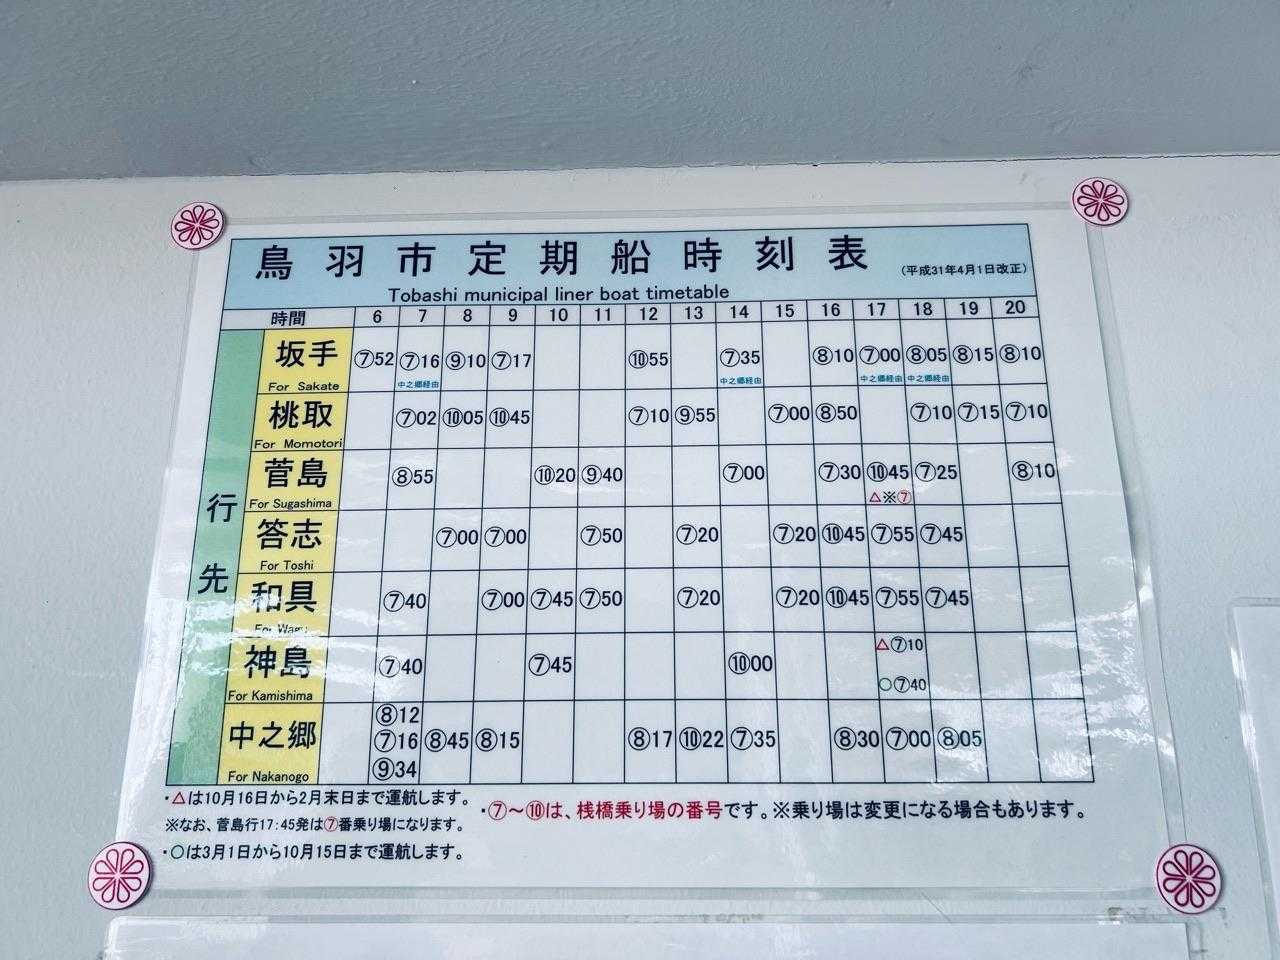 鳥羽市定期船時刻表 (平成31年4月1日改正)
Tobashi municipal liner boat timetable
時間 6 7 8 9 10 11 12 13 14 15 16 17 18 19 20
行先
坂手 ⑦52 ⑦16 ⑨10 ⑦17 ⑩55 ⑦35 ⑧10 ⑦00 ⑧05 ⑧15 ⑧10
For Sakate 中之郷経由 中之郷経由 中之郷経由 中之郷経由
桃取 ⑦02 ⑩05 ⑩45 ⑦10 ⑨55 ⑦00 ⑧50 ⑦10 ⑦15 ⑦10
For Momotori
菅島 ⑧55 ⑩20 ⑨40 ⑦00 ⑦30 ⑩45 ⑦25 ⑧10
For Sugashima △※⑦
答志 ⑦00 ⑦00 ⑦50 ⑦20 ⑦20 ⑩45 ⑦55 ⑦45
For Toshi
和具 ⑦40 ⑦00 ⑦45 ⑦50 ⑦20 ⑦20 ⑩45 ⑦55 ⑦45
For Wagu
△⑦10
神島 ⑦40 ⑦45 ⑩00
For Kamishima ○⑦40
⑧12
中之郷 ⑦16 ⑧45 ⑧15 ⑧17 ⑩22 ⑦35 ⑧30 ⑦00 ⑧05
For Nakanogo ⑨34
・△は10月16日から2月末日まで運航します。
※なお、菅島行17:45発は⑦番乗り場になります。
・○は3月1日から10月15日まで運航します。
・⑦～⑩は、桟橋乗り場の番号です。※乗り場は変更になる場合もあります。